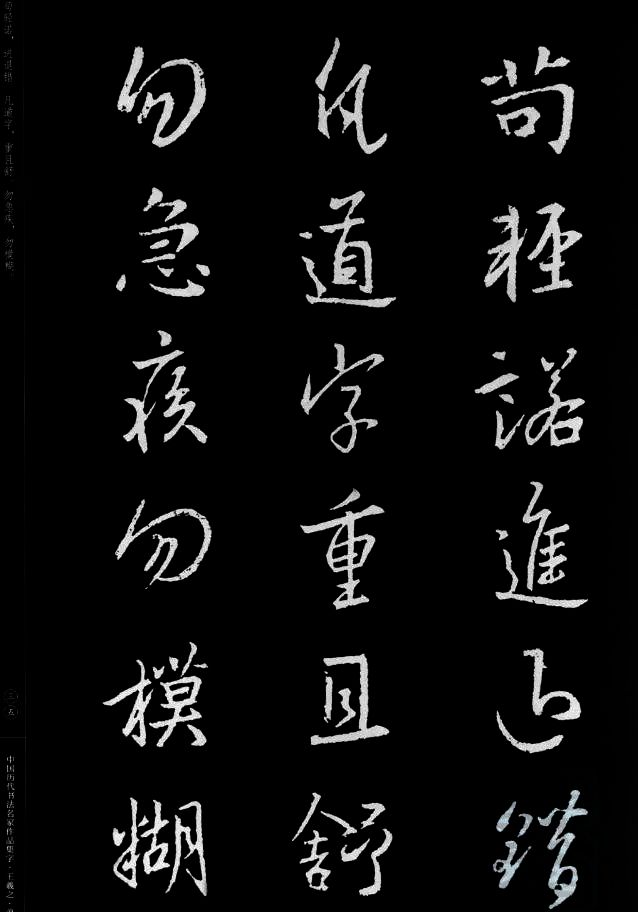 苟輕諾進退錯
凡道字重且舒
勿急疾勿模糊
苟轻诺，进退错 凡道字，重且舒 勿急疾，勿模糊
三〇五
中国历代书法名家作品集字·王羲之